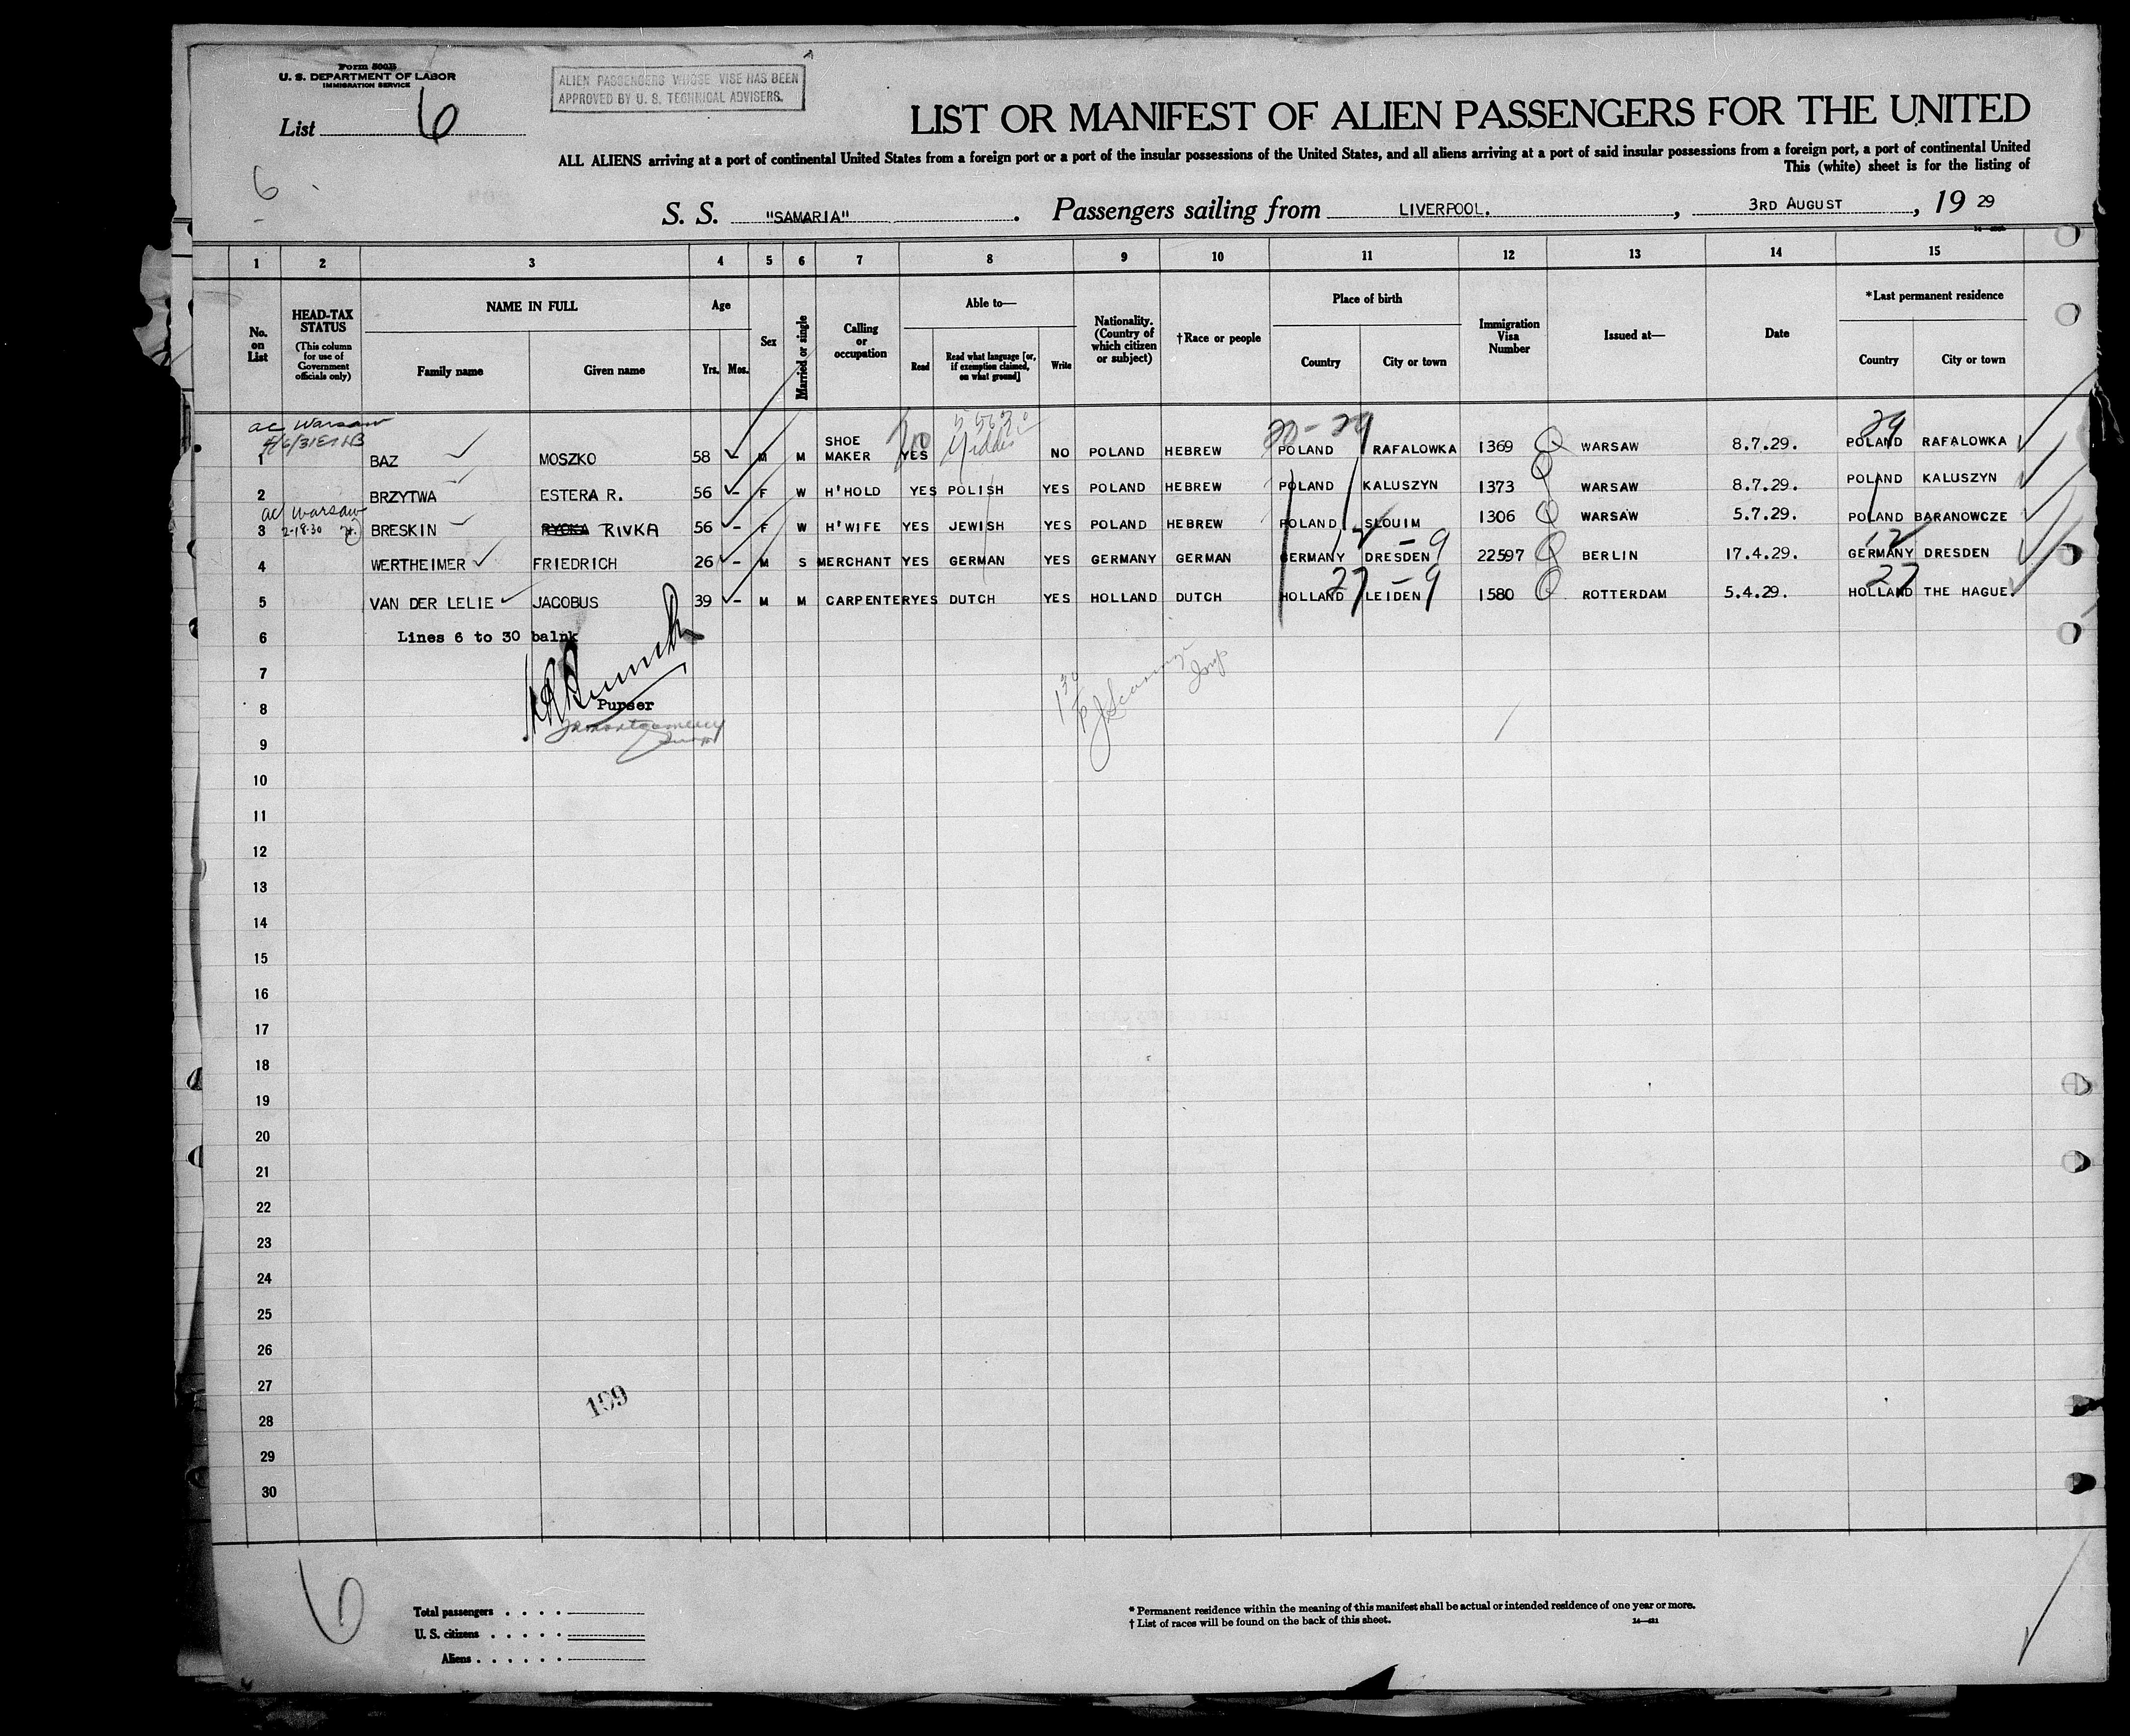 Form 500B
U. S. DEPARTMENT OF LABOR
IMMIGRATION SERVICE
ALIEN PASSENGERS WHOSE VISE HAS BEEN
APPROVED BY U. S. TECHNICAL ADVISERS.
List 6
LIST OR MANIFEST OF ALIEN PASSENGERS FOR THE UNITED
ALL ALIENS arriving at a port of continental United States from a foreign port or a port of the insular possessions of the United States, and all aliens arriving at a port of said insular possessions from a foreign port, a port of continental United
This (white) sheet is for the listing of
6
S. S. "SAMARIA". Passengers sailing from LIVERPOOL., 3RD AUGUST, 19 29
1 2 3 4 5 6 7 8 9 10 11 12 13 14 15
No. on List
HEAD-TAX STATUS (This column for use of Government officials only)
NAME IN FULL
Family name Given name
Age
Yrs. Mos.
Sex
Married or single
Calling or occupation
Able to—
Read Read what language [or, if exemption claimed, on what ground] Write
Nationality. (Country of which citizen or subject)
†Race or people
Place of birth
Country City or town
Immigration Visa Number
Issued at—
Date
*Last permanent residence
Country City or town
ac Warsaw
1 BAZ MOSZKO 58 – M M SHOE MAKER YES Yiddis NO POLAND HEBREW POLAND RAFALOWKA 1369 WARSAW 8.7.29. POLAND RAFALOWKA
2 BRZYTWA ESTERA R. 56 – F W H'HOLD YES POLISH YES POLAND HEBREW POLAND KALUSZYN 1373 WARSAW 8.7.29. POLAND KALUSZYN
ac Warsaw
3 2-18-30 BRESKIN RYCKA RIVKA 56 – F W H'WIFE YES JEWISH YES POLAND HEBREW POLAND SLOUIM 1306 WARSAW 5.7.29. POLAND BARANOWCZE
12 – 9 12
4 WERTHEIMER FRIEDRICH 26 – M S MERCHANT YES GERMAN YES GERMANY GERMAN GERMANY DRESDEN 22597 BERLIN 17.4.29. GERMANY DRESDEN
27 – 9 27
5 VAN DER LELIE JACOBUS 39 – M M CARPENTER YES DUTCH YES HOLLAND DUTCH HOLLAND LEIDEN 1580 ROTTERDAM 5.4.29. HOLLAND THE HAGUE.
6 Lines 6 to 30 balnk
7
8 Purser
9
10
11
12
13
14
15
16
17
18
19
20
21
22
23
24
25
26
27
199
28
29
30
6
Total passengers . . . .
U. S. citizens . . . . .
Aliens . . . . . .
* Permanent residence within the meaning of this manifest shall be actual or intended residence of one year or more.
† List of races will be found on the back of this sheet.